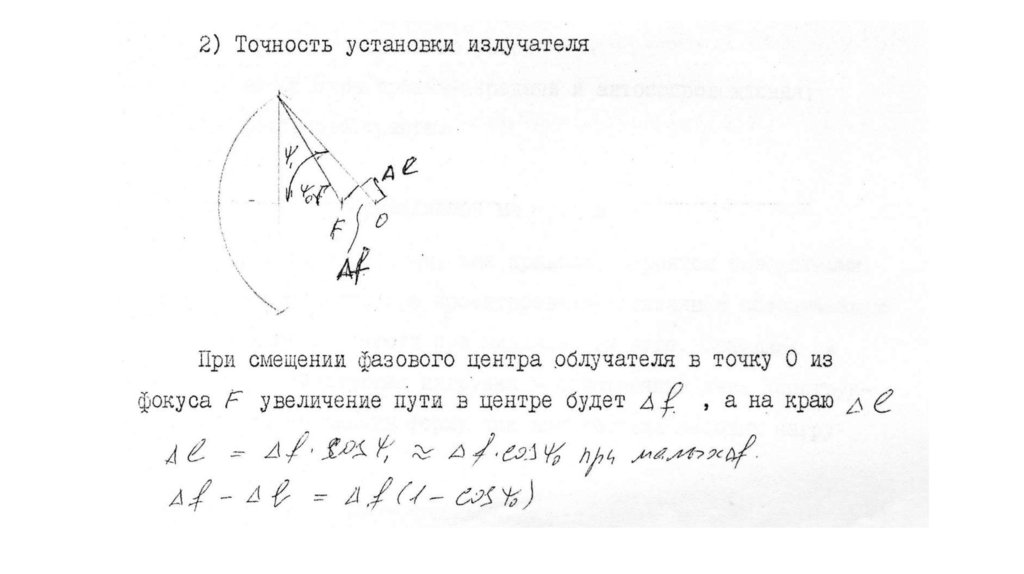 2) Точность установки излучателя
ψ₁
ψ₀
Δl
F
O
Δf
При смещении фазового центра облучателя в точку O из
фокуса F увеличение пути в центре будет Δf , а на краю Δl
Δl = Δf · cosψ₁ ≈ Δf·cosψ₀ при малых Δf.
Δf − Δl = Δf(1 − cosψ₀)